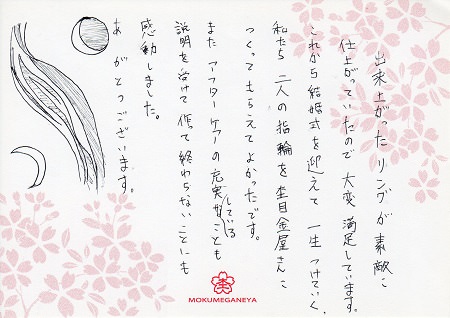 出来上がったリングが素敵に
仕上がっていたので大変満足しています。
これから結婚式を迎えて一生つけていく、
私たち二人の指輪を杢目金屋さんに
つくってもらえてよかったです。
また アフターケアーの充実していることも
説明を受けて 作って終わらないことにも
感動しました。
ありがとうございます。
MOKUMEGANEYA